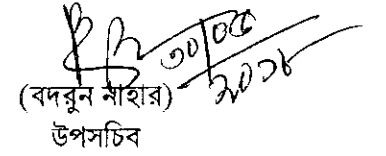 ৩০/০৫
২০১৮
(বদরুন নাহার)
উপসচিব